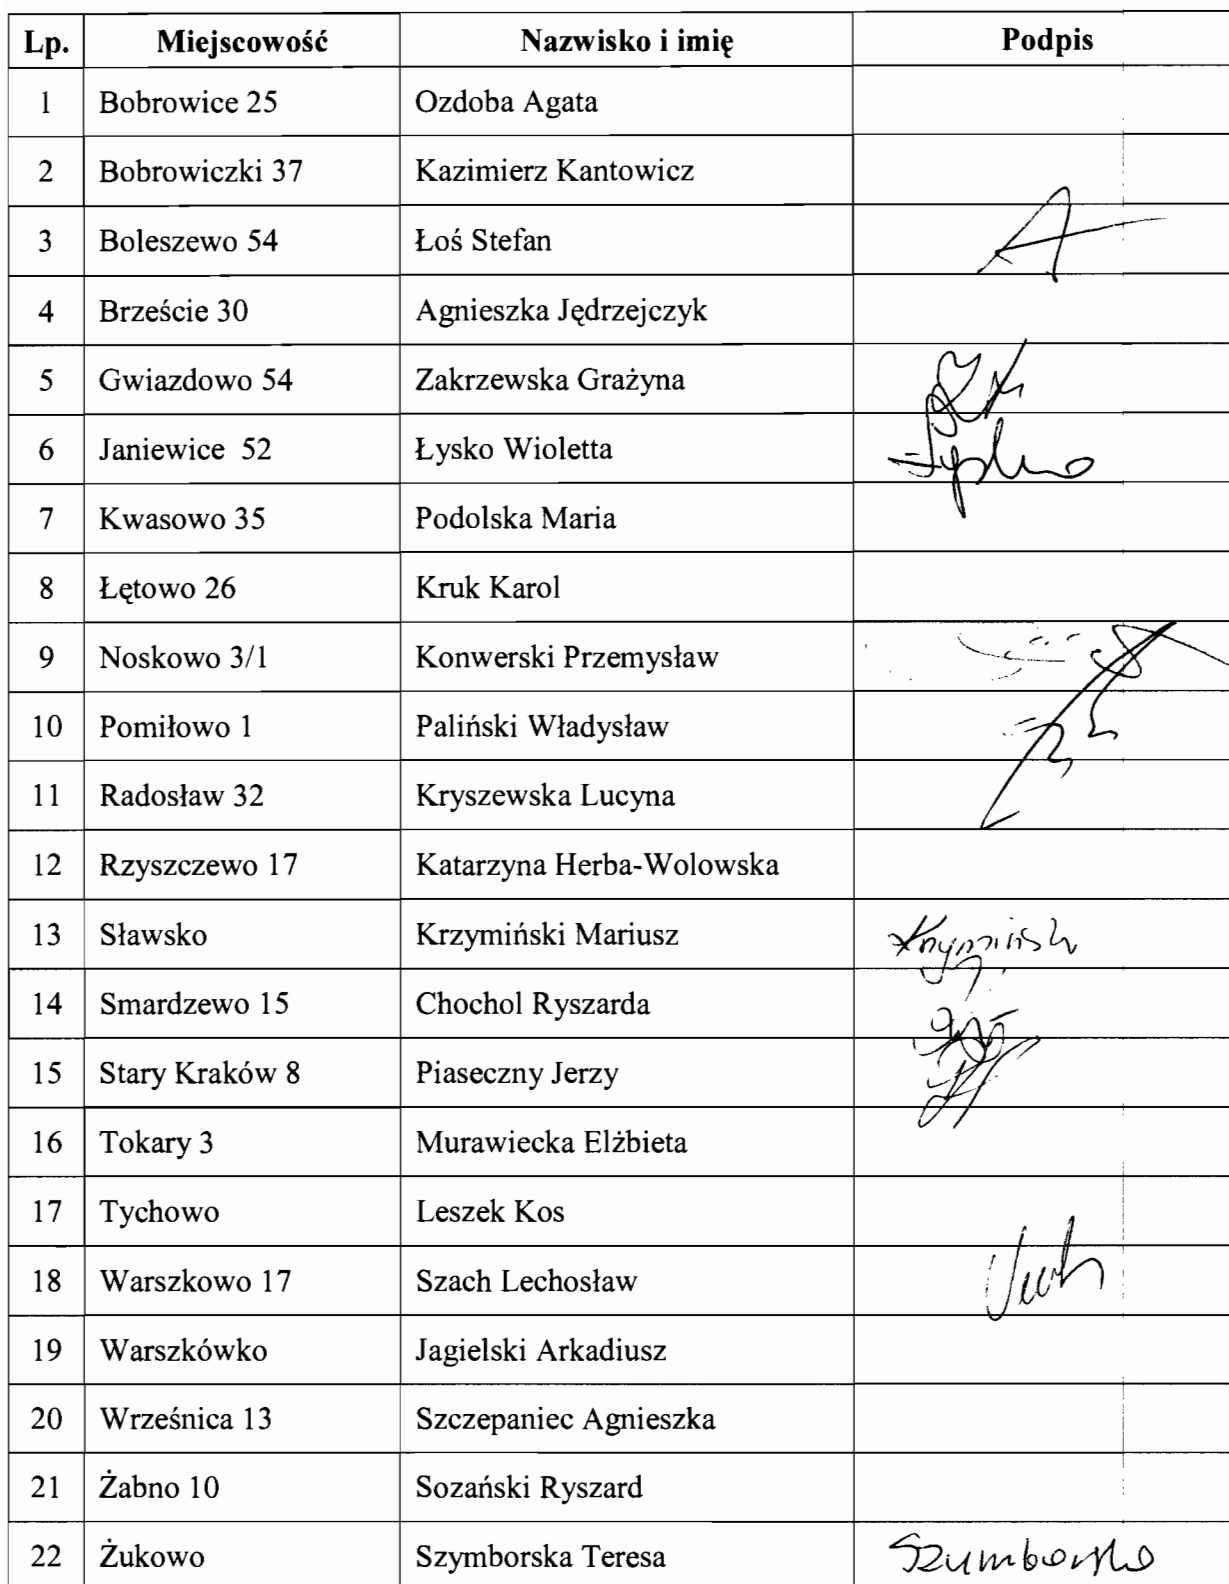 Lp. Miejscowość Nazwisko i imię Podpis
1 Bobrowice 25 Ozdoba Agata
2 Bobrowiczki 37 Kazimierz Kantowicz
3 Boleszewo 54 Łoś Stefan
4 Brzeście 30 Agnieszka Jędrzejczyk
5 Gwiazdowo 54 Zakrzewska Grażyna
6 Janiewice 52 Łysko Wioletta
7 Kwasowo 35 Podolska Maria
8 Łętowo 26 Kruk Karol
9 Noskowo 3/1 Konwerski Przemysław
10 Pomiłowo 1 Paliński Władysław
11 Radosław 32 Kryszewska Lucyna
12 Rzyszczewo 17 Katarzyna Herba-Wolowska
13 Sławsko Krzymiński Mariusz
14 Smardzewo 15 Chochol Ryszarda
15 Stary Kraków 8 Piaseczny Jerzy
16 Tokary 3 Murawiecka Elżbieta
17 Tychowo Leszek Kos
18 Warszkowo 17 Szach Lechosław
19 Warszkówko Jagielski Arkadiusz
20 Wrześnica 13 Szczepaniec Agnieszka
21 Żabno 10 Sozański Ryszard
22 Żukowo Szymborska Teresa Szymborska